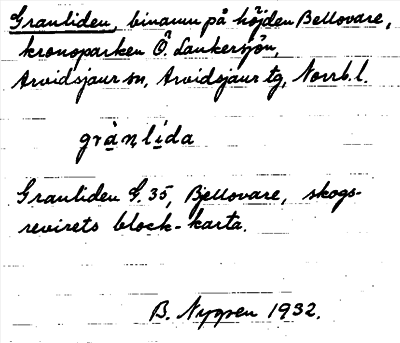 Granliden, binamn på höjden Bellovare,
kronoparken Ö. Lankersjön,
Arvidsjaur sn, Arvidsjaur tg, Norrb. l.
grànlìda
Granliden G. 35, Bjellovare, skogs-
revirets block-karta.
B. Nygren 1932.